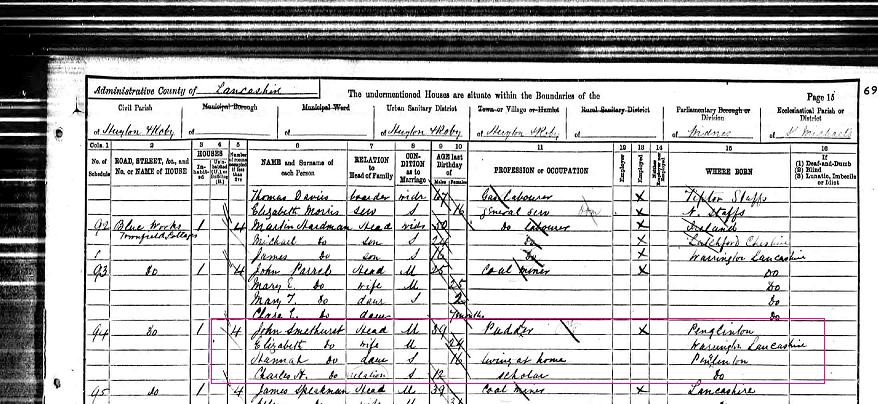 69
Administrative County of Lancashire
The undermentioned Houses are situate within the Boundaries of the
Page 15
Civil Parish Municipal Borough Municipal Ward Urban Sanitary District Town or Village or Hamlet Rural Sanitary District Parliamentary Borough or Division Ecclesiastical Parish or District
of Huyton & Roby of of of Huyton & Roby of Huyton & Roby of of Widnes of St Michaels
Cols. 1 2 3 4 5 6 7 8 9 10 11 12 13 14 15 16
No. of Schedule ROAD, STREET, &c., and No. or NAME of HOUSE HOUSES NAME and Surname of each Person RELATION to Head of Family CONDITION as to Marriage AGE last Birthday of PROFESSION or OCCUPATION Employer Employed WHERE BORN (1) Deaf-and-Dumb (2) Blind (3) Lunatic, Imbecile or Idiot
Inhabited Males Females
Thomas Davies boarder widr 67 Labourer X Tipton Staffs
Elizabeth Morris serv S 16 General serv Dom X N. Staffs
92 Blue Works Townfield Cottages 1 4 Martin Hardman Head widr 50 do labourer X Ireland
Michael Do son S 24 do X Latchford Cheshire
1 James Do son S 16 do X Warrington Lancashire
93 Do 1 4 John Parrel Head M 25 Coal miner X Do
Mary E. Do wife M 25 Do
Mary T. Do daur S 2 Do
Clara E. Do daur months Do
94 Do 1 4 John Smethurst Head M 39 Puddler X Penglinton
Elizabeth Do wife M 29 Warrington Lancashire
Hannah Do daur S 16 living at home Penglinton
Charles H. Do relation S 12 scholar Do
95 Do 1 4 James Speakman Head M 39 Coal miner X Lancashire